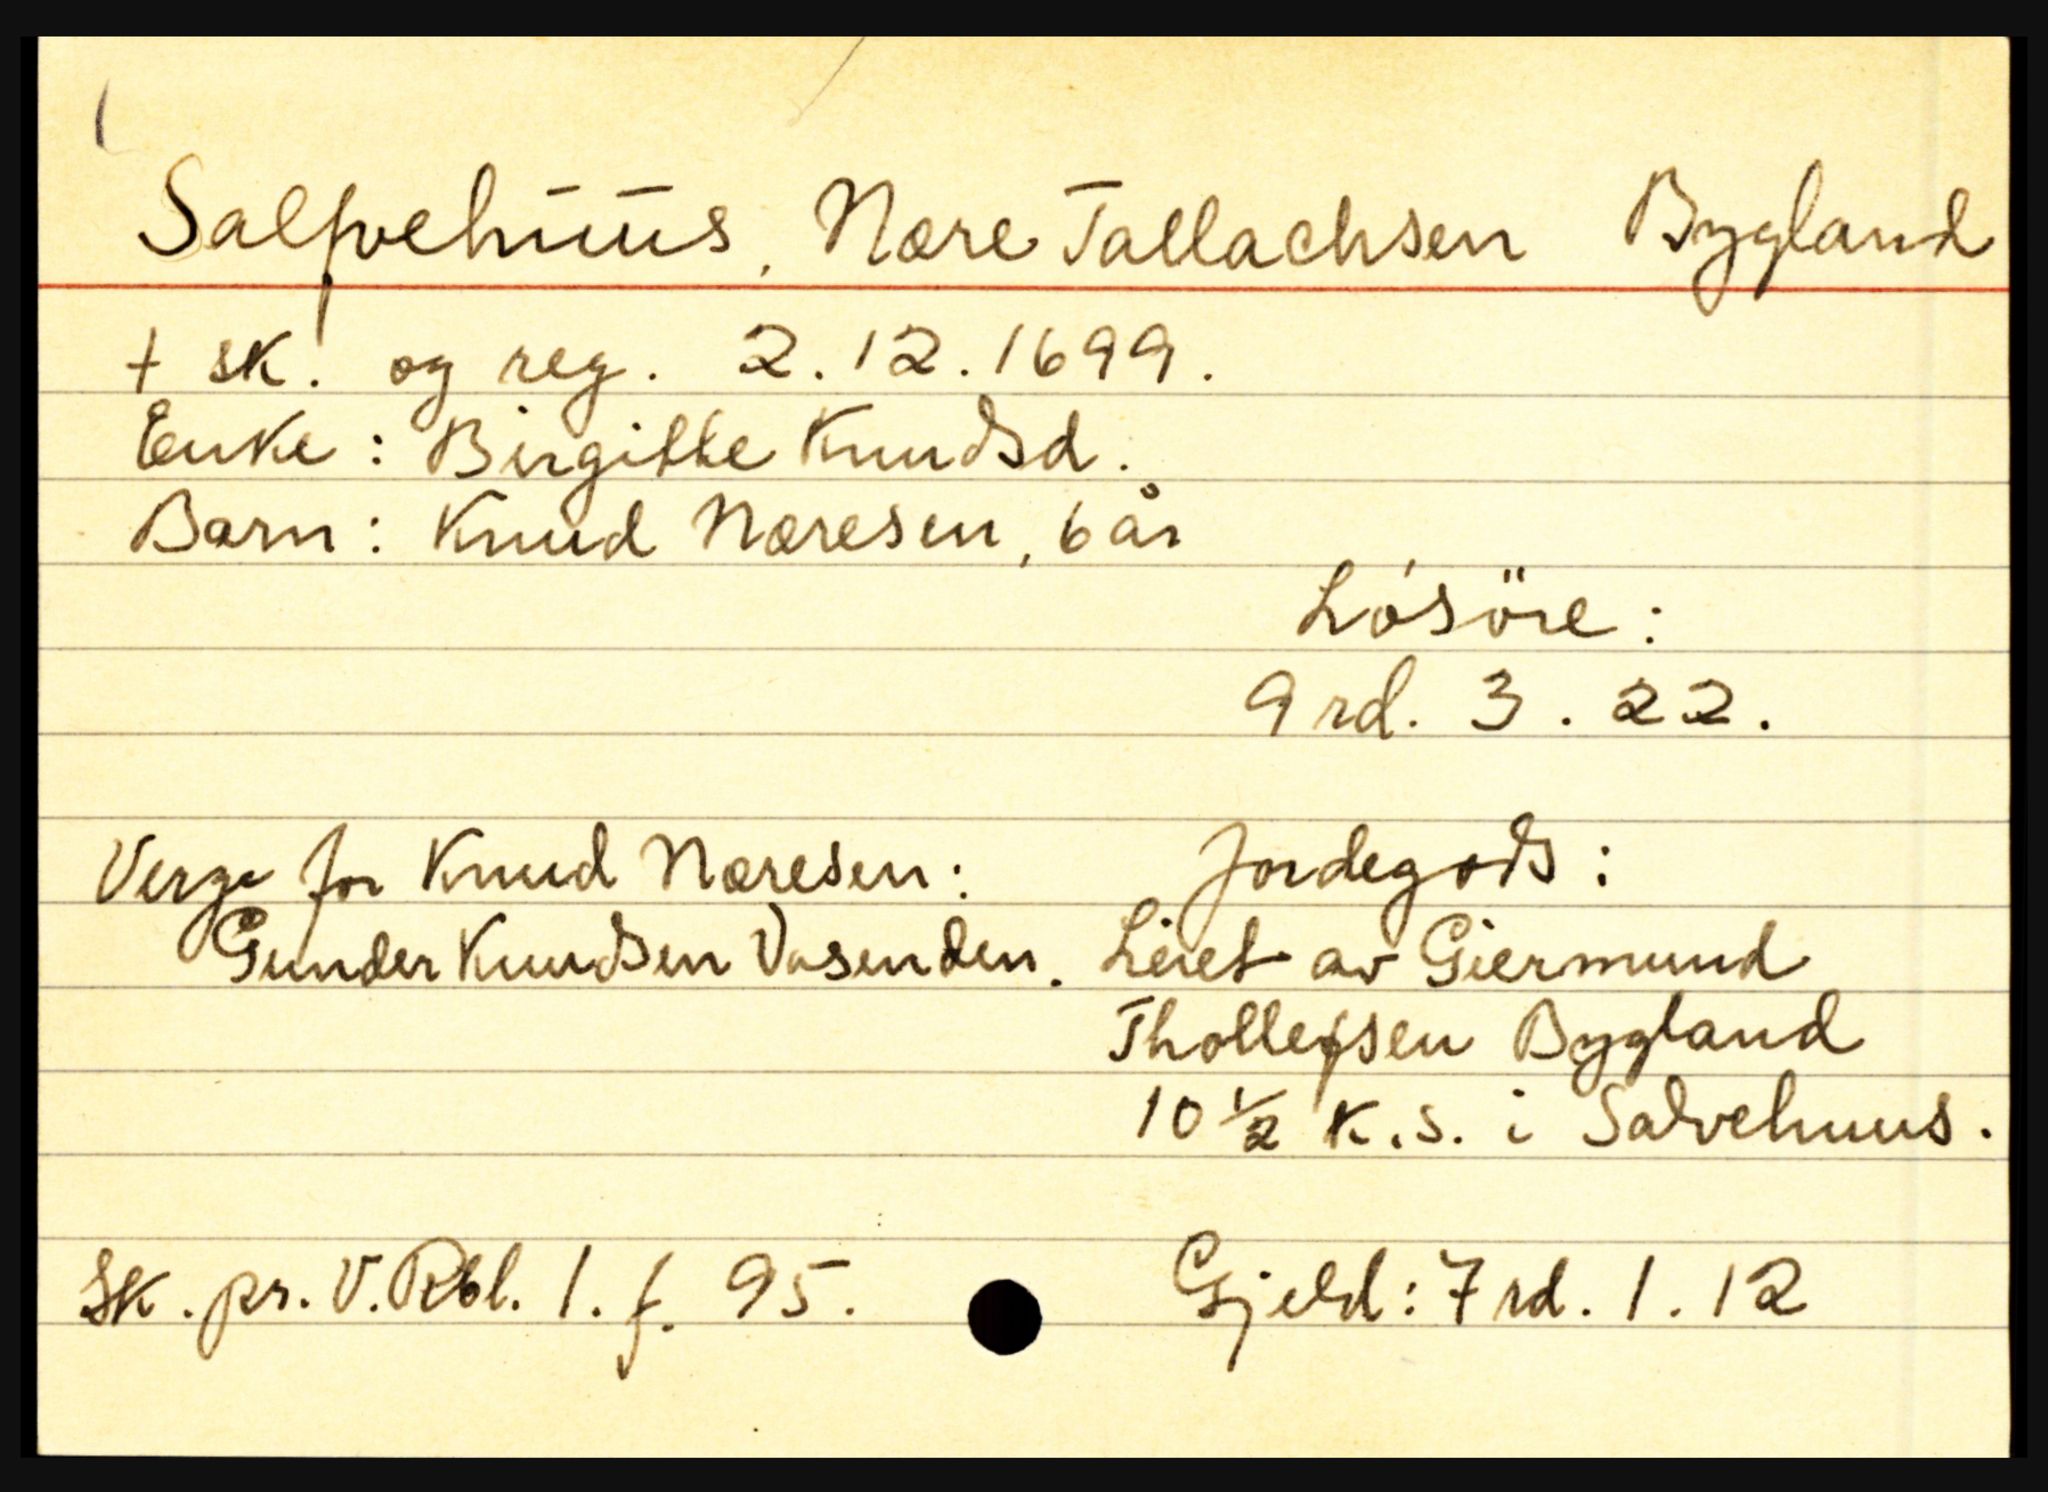 Salfvehūūs, Nære Tallachsen Bygland
+ sk. og reg. 2.12.1699.
Enke: Birgitte Knudsd.
Barn: Knud Næresen, 6 år
Lósöre:
9 rd. 3. 22.
Verge for Knud Næresen: Jordegods:
Gunder Knudsen Vasenden. Leiet av Giermund
Thollefsen Bygland
10 1/2 K.S. i Salvehuus.
Sk. pr. V. Rbl. 1. f. 95. Gjeld: 7 rd. 1. 12